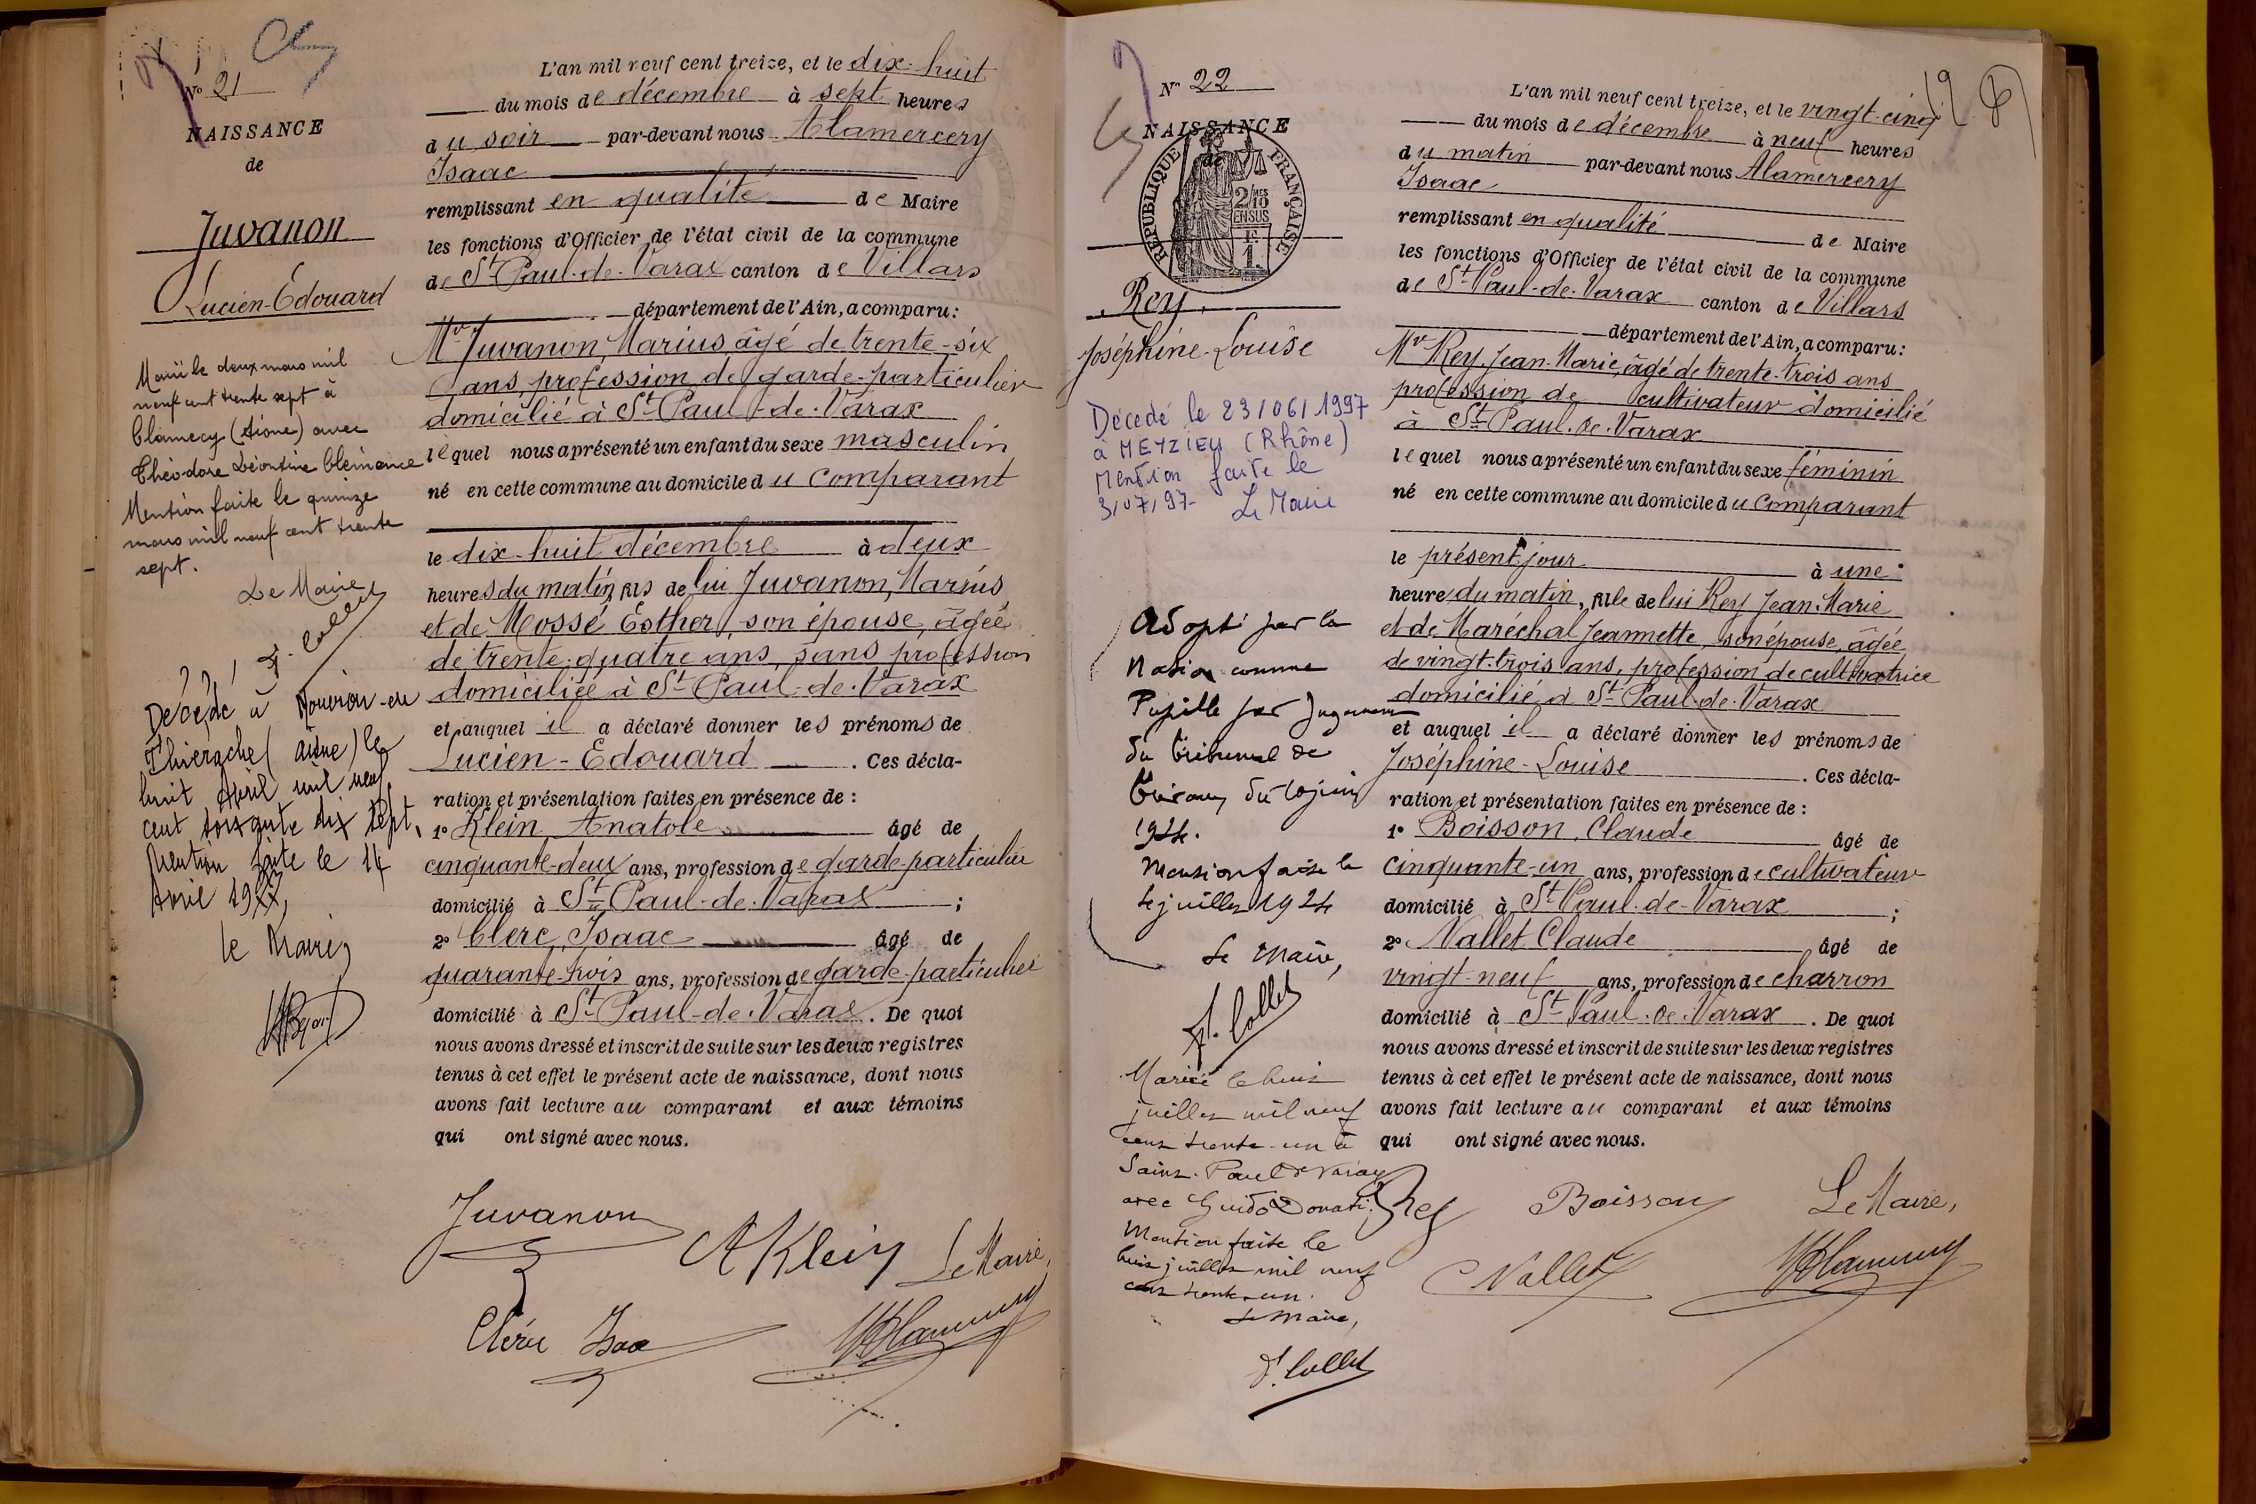 N° 21
NAISSANCE
de
Juvanon
Lucien-Édouard
Marié le deux mars mil
neuf cent trente sept à
Clamecy (Aisne) avec
Théodore Léontine Clémence
Mention faite le quinze
mars mil neuf cent trente
sept.
Le Maire
F. Collet
Décédé à Nouvion-en
Thiérache (Aisne) le
huit Avril mil neuf
cent soixante dix sept,
Mention faite le 14
Avril 19
le Maire,
L'an mil neuf cent treize, et le dix-huit
du mois de décembre à sept heures
du soir par-devant nous Alamercery
Isaac
remplissant en qualité de Maire
les fonctions d'Officier de l'état civil de la commune
de St Paul-de-Varax canton de Villars
département de l'Ain, a comparu:
Mr Juvanon, Marius, âgé de trente-six
ans, profession de garde-particulier
domicilié à St Paul-de-Varax
lequel nous a présenté un enfant du sexe masculin
né en cette commune au domicile du comparant
le dix-huit décembre à deux
heures du matin, fils de lui Juvanon, Marius
et de Mossé Esther, son épouse, âgée
de trente-quatre ans, sans profession
domiciliée à St Paul-de-Varax
et auquel il a déclaré donner les prénoms de
Lucien-Édouard . Ces décla-
ration et présentation faites en présence de :
1° Klein, Anatole âgé de
cinquante-deux ans, profession de garde-particulier
domicilié à St Paul-de-Varax ;
2° Clerc, Isaac âgé de
quarante-trois ans, profession de garde-particulier
domicilié à St Paul-de-Varax . De quoi
nous avons dressé et inscrit de suite sur les deux registres
tenus à cet effet le présent acte de naissance, dont nous
avons fait lecture au comparant et aux témoins
qui ont signé avec nous.
Juvanon
A Klein
Le Maire,
Clerc Isaac
N° 22
NAISSANCE
de
REPUBLIQUE FRANÇAISE
2/10 MES
EN SUS
Rey
Joséphine-Louise
Décédé le 23/06/1997
à MEYZIEU (Rhône)
Mention faite le
3/07/97-
Le Maire
Adopté par la
Nation comme
Pupille par Jugement
du tribunal de
Trévoux du 20 juin
1924.
Mention faite le
juillet 1924
Le Maire,
F. Collet
Mariée le huit
juillet mil neuf
cent trente-un à
Saint-Paul de Varax
avec Guido Donati.
Mention faite le
huit juillet mil neuf
cent trente-un.
Le Maire,
F. Collet
L'an mil neuf cent treize, et le vingt-cinq
du mois de décembre à neuf heures
du matin par-devant nous Alamercery
Isaac
remplissant en qualité de Maire
les fonctions d'Officier de l'état civil de la commune
de St Paul-de-Varax canton de Villars
département de l'Ain, a comparu:
Mr Rey, Jean-Marie, âgé de trente-trois ans
profession de cultivateur domicilié
à St Paul-de-Varax
lequel nous a présenté un enfant du sexe féminin
né en cette commune au domicile du comparant
le présent jour à une
heure du matin, fille de lui Rey Jean-Marie
et de Maréchal Jeannette, son épouse, âgée
de vingt-trois ans, profession de cultivatrice
domicilié à St Paul-de-Varax
et auquel il a déclaré donner les prénoms de
Joséphine-Louise . Ces décla-
ration et présentation faites en présence de :
1° Boisson, Claude âgé de
cinquante-un ans, profession de cultivateur
domicilié à St Paul-de-Varax ;
2° Nallet Claude âgé de
vingt-neuf ans, profession de charron
domicilié à St Paul-de-Varax . De quoi
nous avons dressé et inscrit de suite sur les deux registres
tenus à cet effet le présent acte de naissance, dont nous
avons fait lecture au comparant et aux témoins
qui ont signé avec nous.
Rey
Boisson
Le Maire,
C Nallet